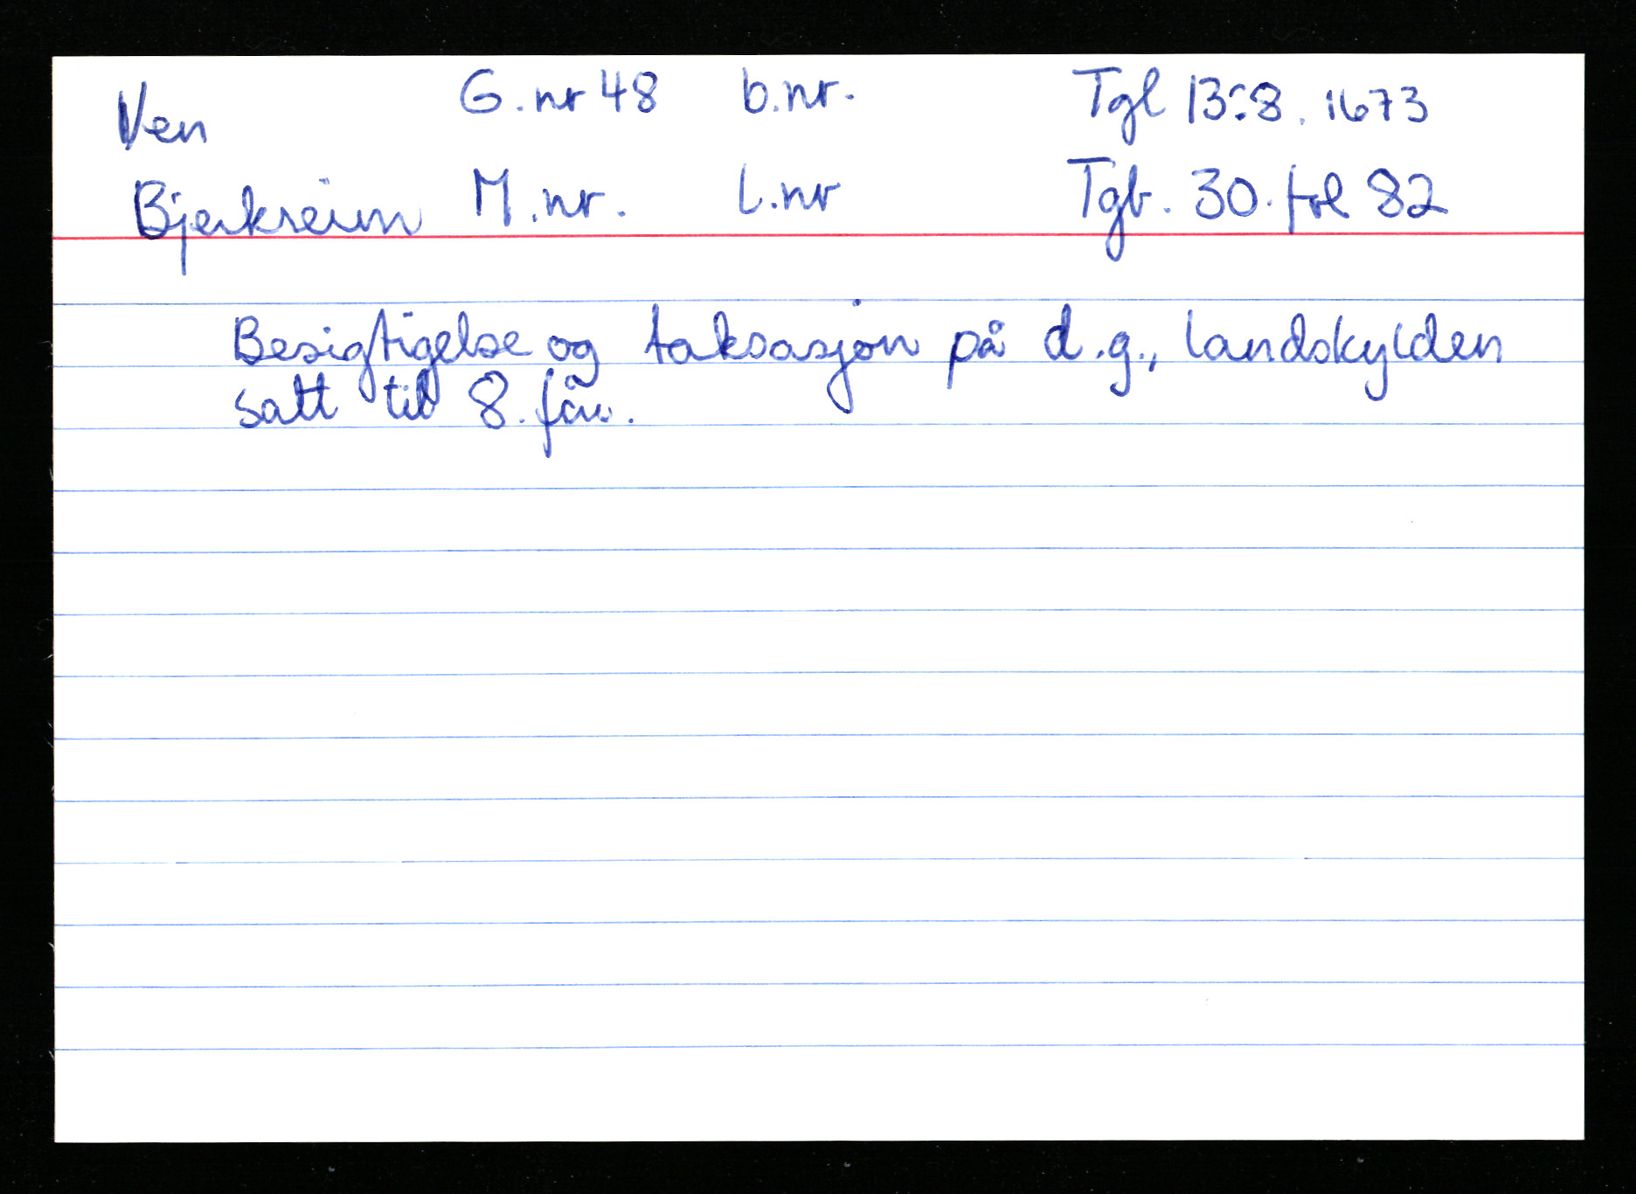 Ven G.nr 48 b.nr. Tgl 13:8. 1673
Bjerkreim M.nr. L.nr Tgb. 30. fol 82
Besigtigelse og taksasjon på d.g., landskylden
satt til 8. får.